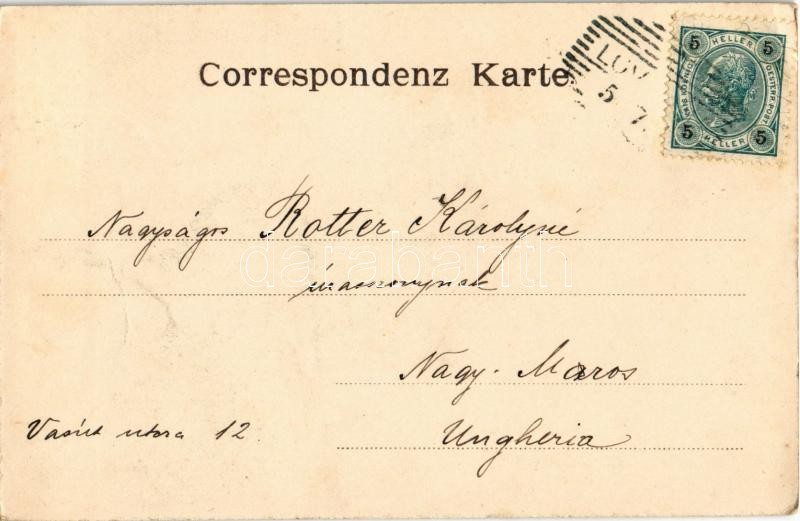 Correspondenz Karte
LOV
5 7
5 HELLER 5
OESTERR. POST.
5 HELLER 5
Nagyságos Rotter Károlyné
úrasszonynak
Nagy-Maros
Vasút utcza 12.
Ungheria
darabanth